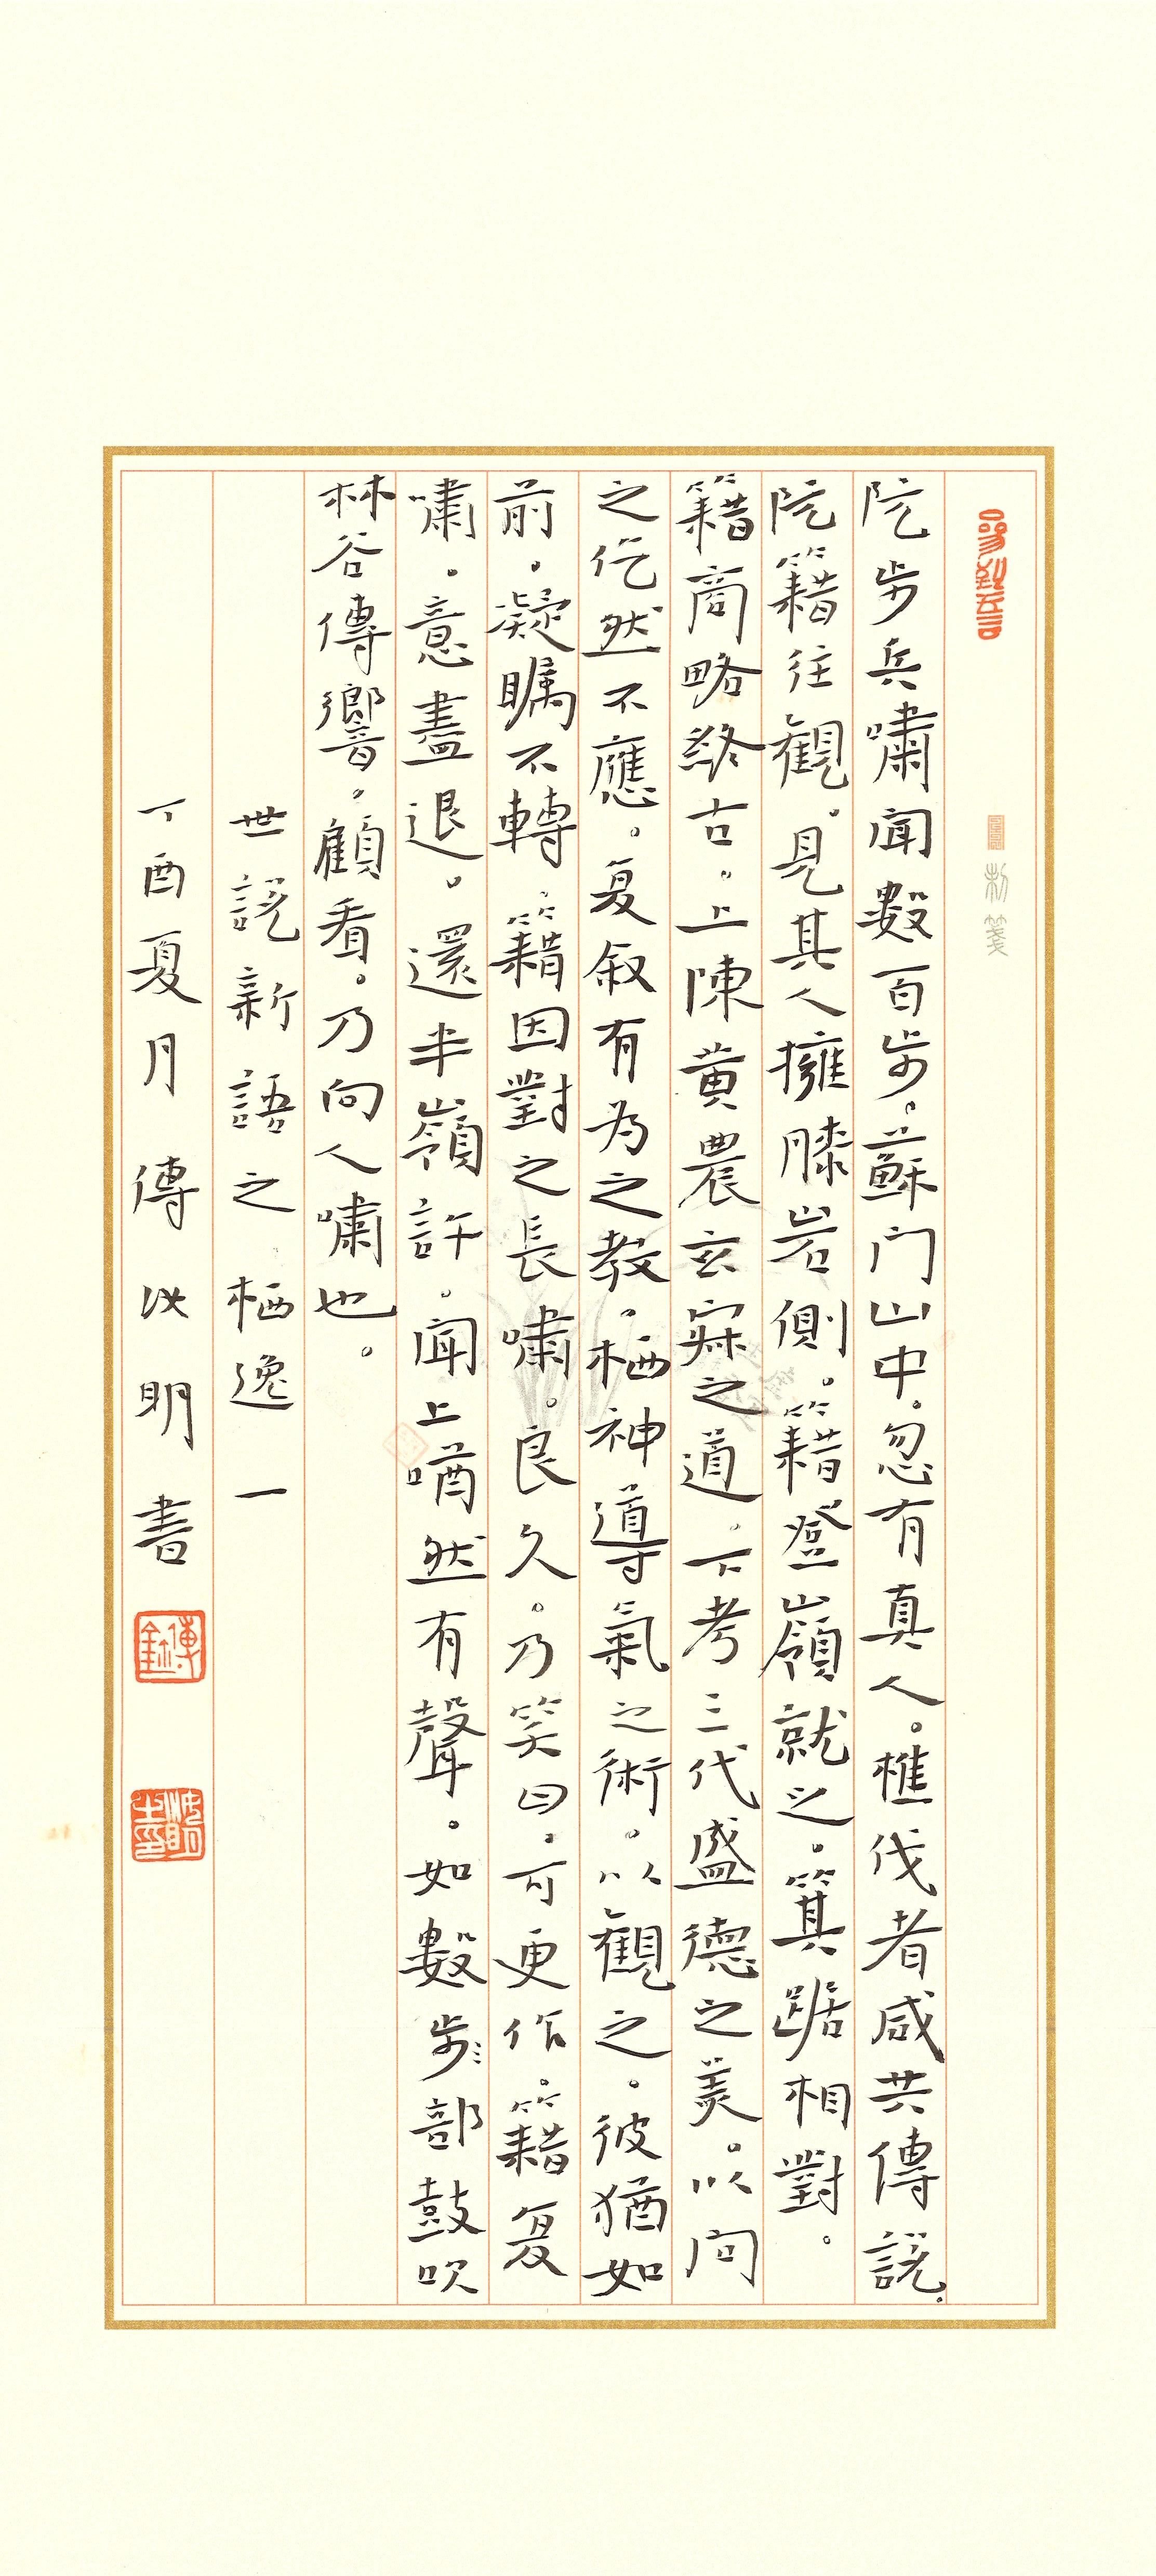 阮步兵嘯聞數百步。蘇门山中。忽有真人。樵伐者咸共傳説。
阮籍往觀。見其人擁膝岩側。籍登嶺就之。箕踞相對。
籍商略終古。上陳黄農玄寂之道。下考三代盛德之美。以问
之仡然不應。复叙有为之教。栖神導氣之術。以觀之。彼猶如
前。凝瞩不轉。籍因對之長嘯。良久。乃笑曰。可更作。籍复
嘯。意盡退。還半嶺許。聞上㗜然有聲。如數步部鼓吹
林谷傳響。顧看。乃向人嘯也。
世説新語之栖逸一
丁酉夏月 傅以明 書
制箋